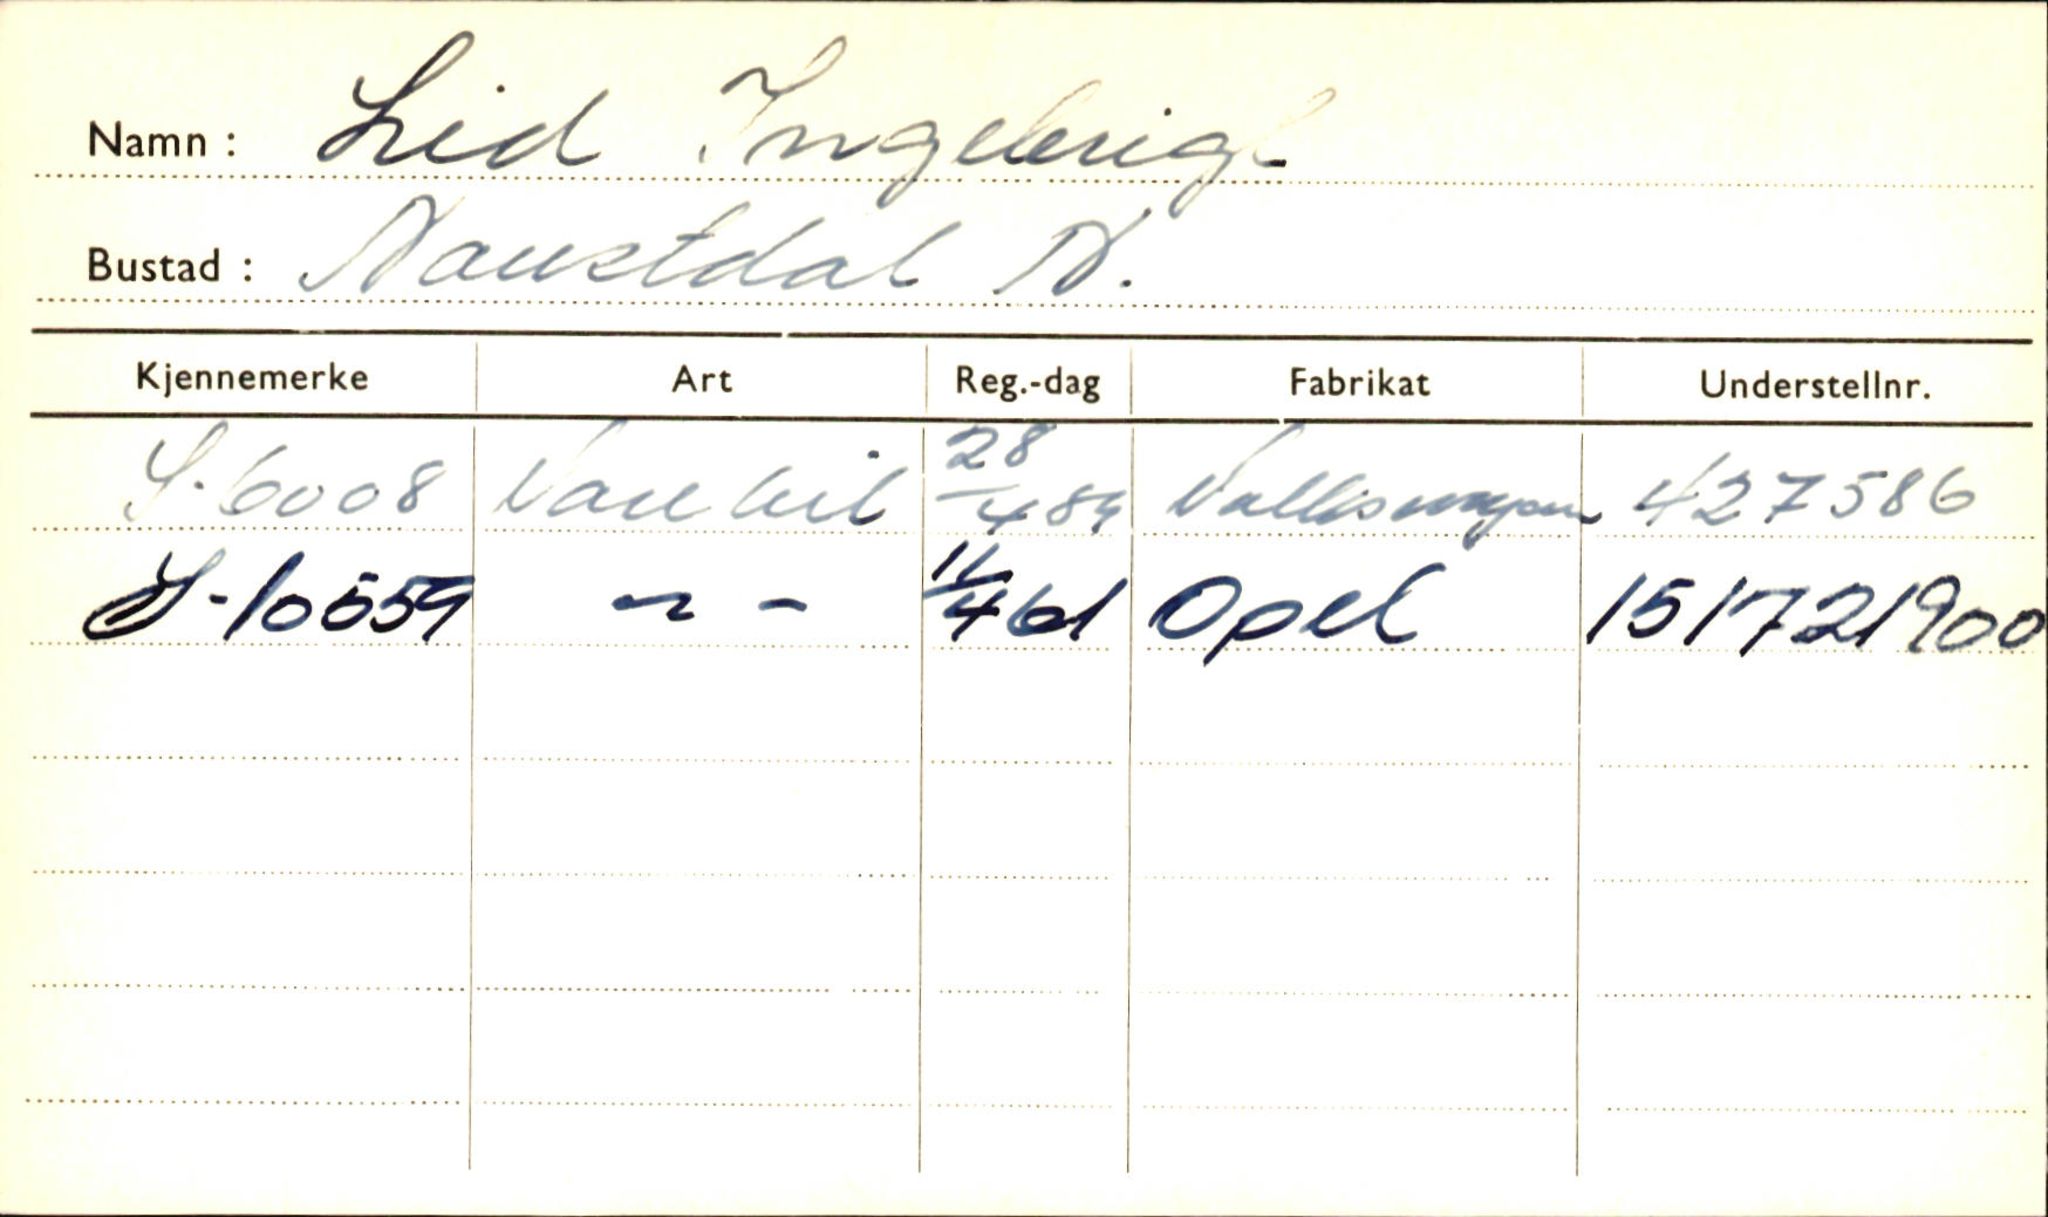 Namn: Lid Ingebrigt
Bustad: Naustdal N.
Kjennemerke Art Reg.-dag Fabrikat Understellnr.
S-6008 Varebil 28/4 Volkswagen 427586
S-10559 — " — 11/4 61 Opel 151721900